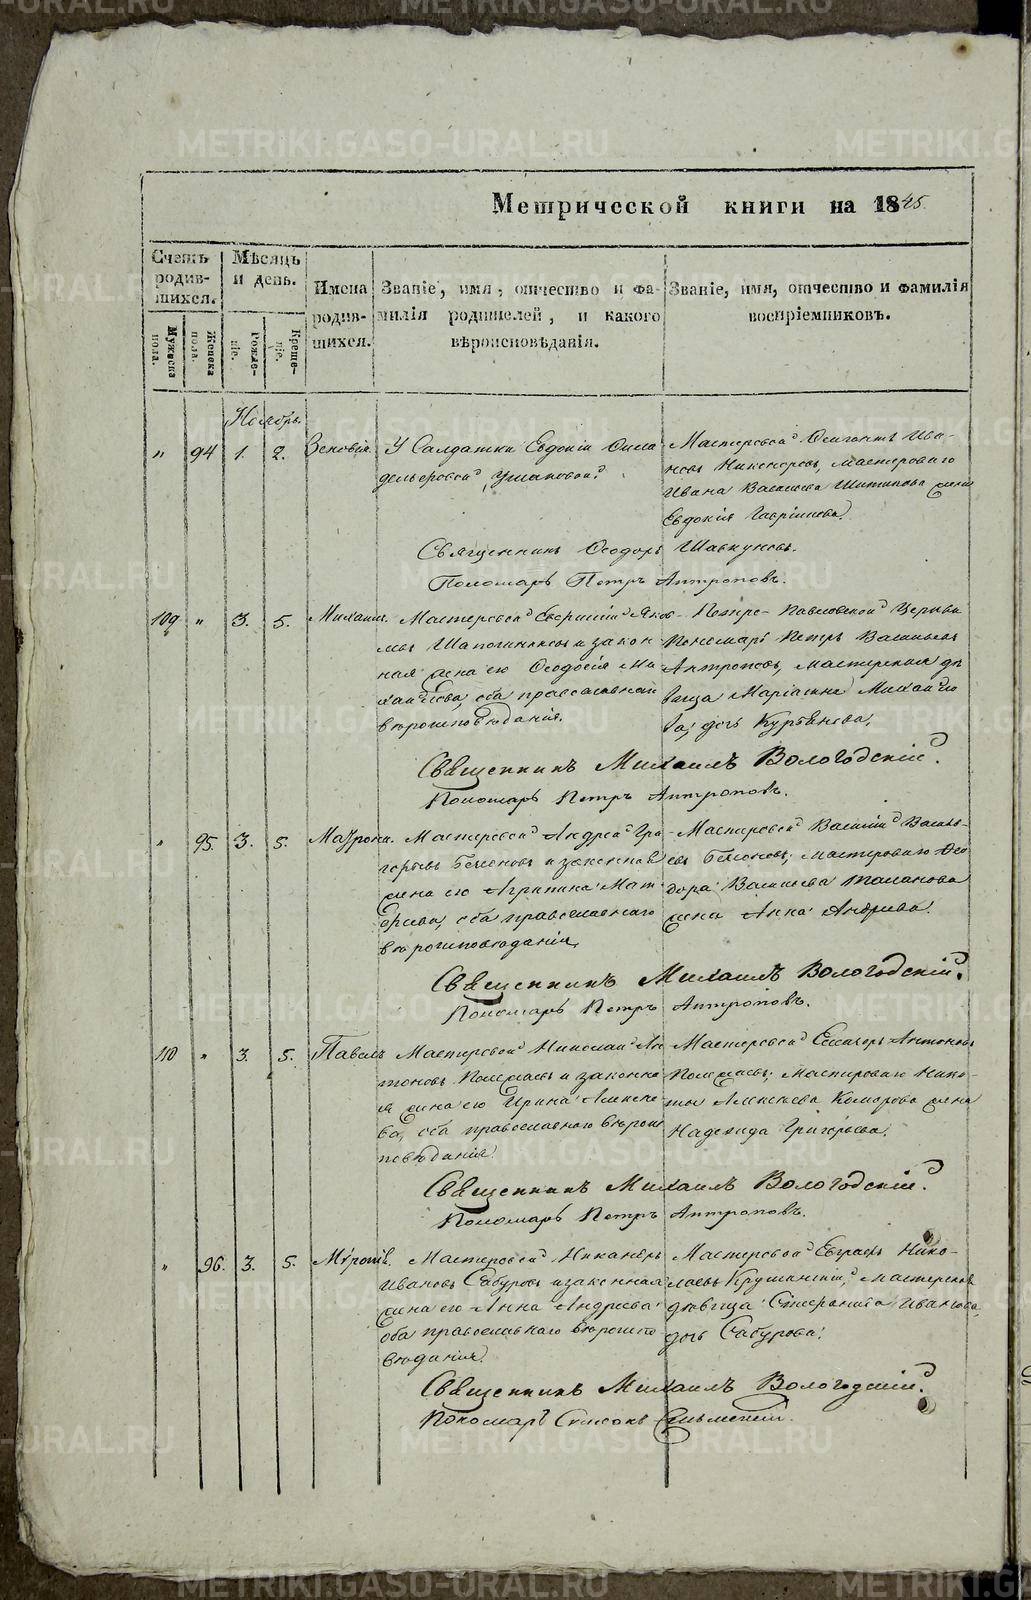 METRIKI.GASO-URAL.RU
Метрической книги на 1845.
Счетъ родившихся.
Мѣсяцъ и день.
Имена родившихся.
Званіе, имя, отчество и фамилія родителей, и какого вѣроисповѣданія.
Званіе, имя, отчество и фамилія воспріемниковъ.
Мужеска пола.
Женска пола.
Рожденіе.
Крещеніе.
Ноябрь.
" 94 1. 2. Зеновія. У Салдатки Евдокіи
Ушаковой.
Мастерской Ива-
новъ Никифоровъ, мастероваго
Ивана Васильева жена
Евдокія Гавріилова.
Священникъ Ѳеодоръ Шавкуновъ.
Пономарь Петръ Антроповъ.
109 " 3. 5. Михаилъ. Мастерской Яков-
левъ Шапошниковъ и закон-
ная жена его Ѳеодосія Ми-
хайлова, оба православнаго
вѣроисповѣданія.
Петро-Павловской Церкви
Пономарь Петръ Васильевъ
Антроповъ, мастерская дѣ-
вица Михайло-
ва, дочь
Священникъ Михаилъ Вологодскій.
Пономарь Петръ Антроповъ.
" 95. 3. 5. Матрона. Мастерской Андрей Гри-
горьевъ и законная
жена его Агрипина Мат-
вѣева, оба православнаго
вѣроисповѣданія.
Мастерской Василій Василь-
евъ мастероваго Ѳео-
дора Васильева Таланова
жена Анна Андреева.
Священникъ Михаилъ Вологодскій.
Пономарь Петръ Антроповъ.
110 " 3. 5. Павелъ Мастерской Николай Ан-
тоновъ и законна-
я жена его Ирина Алексѣе-
ва, оба православнаго вѣроис-
повѣданія.
Мастерской Антоновъ
Мастероваго Ники-
ты Алексѣева Комарова жена
Надежда Григорьева.
Священникъ Михаилъ Вологодскій.
Пономарь Петръ Антроповъ.
" 96. 3. 5. Мѵропія. Мастеровой Никаноръ
Ивановъ Сабуровъ и законная
жена его Анна Андреева
оба православнаго вѣроиспо-
вѣданія.
Мастерской Евграфъ Нико-
лаевъ Крушинскій, мастерская
дѣвица Стефанида Иванова,
дочь Сабурова.
Священникъ Михаилъ Вологодскій.
Пономарь